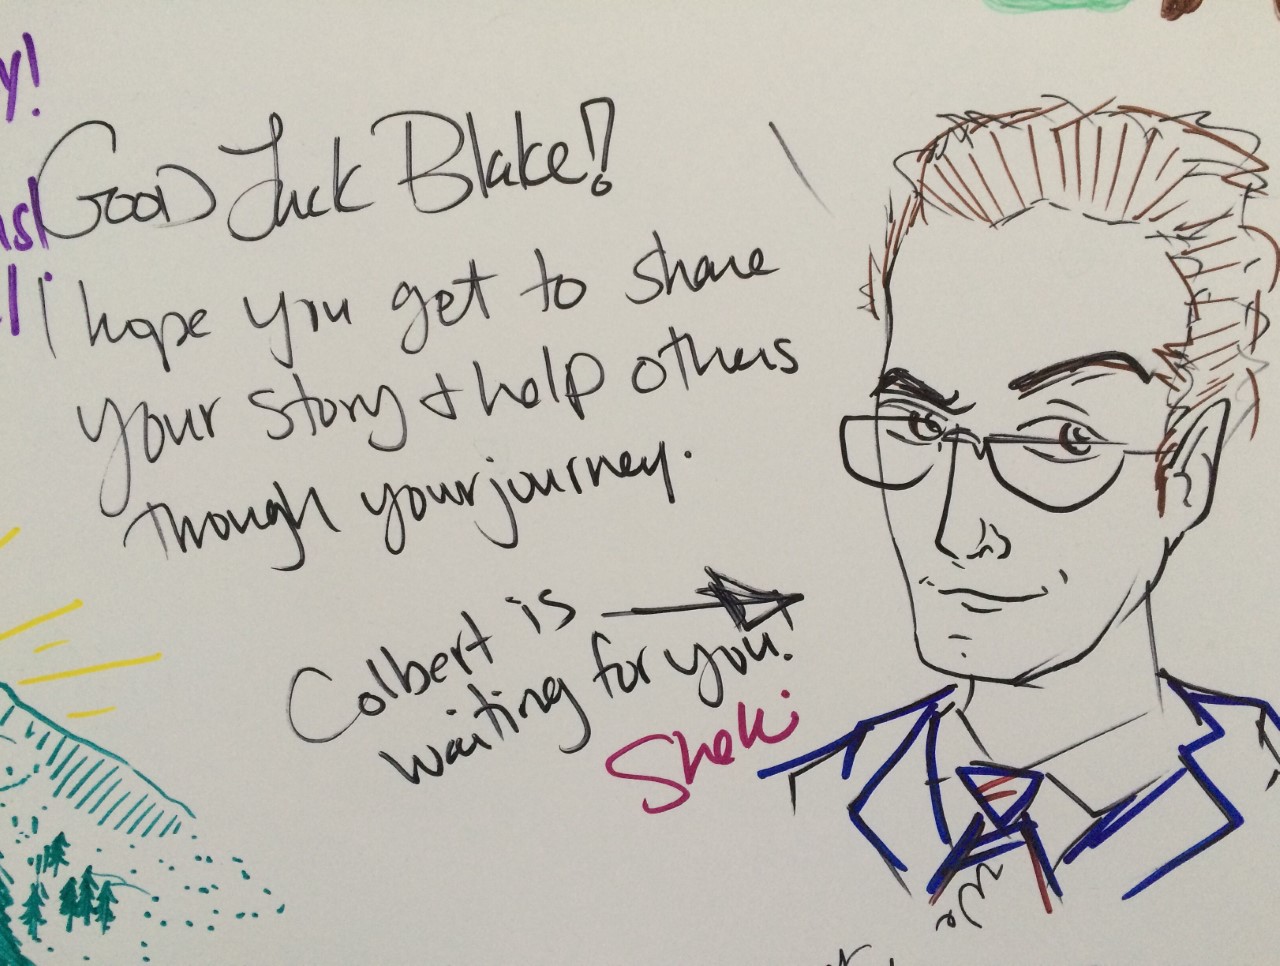 y!
Good Luck Blake!
I hope you get to share
your story + help others
though your journey.
Colbert is
waiting for you!